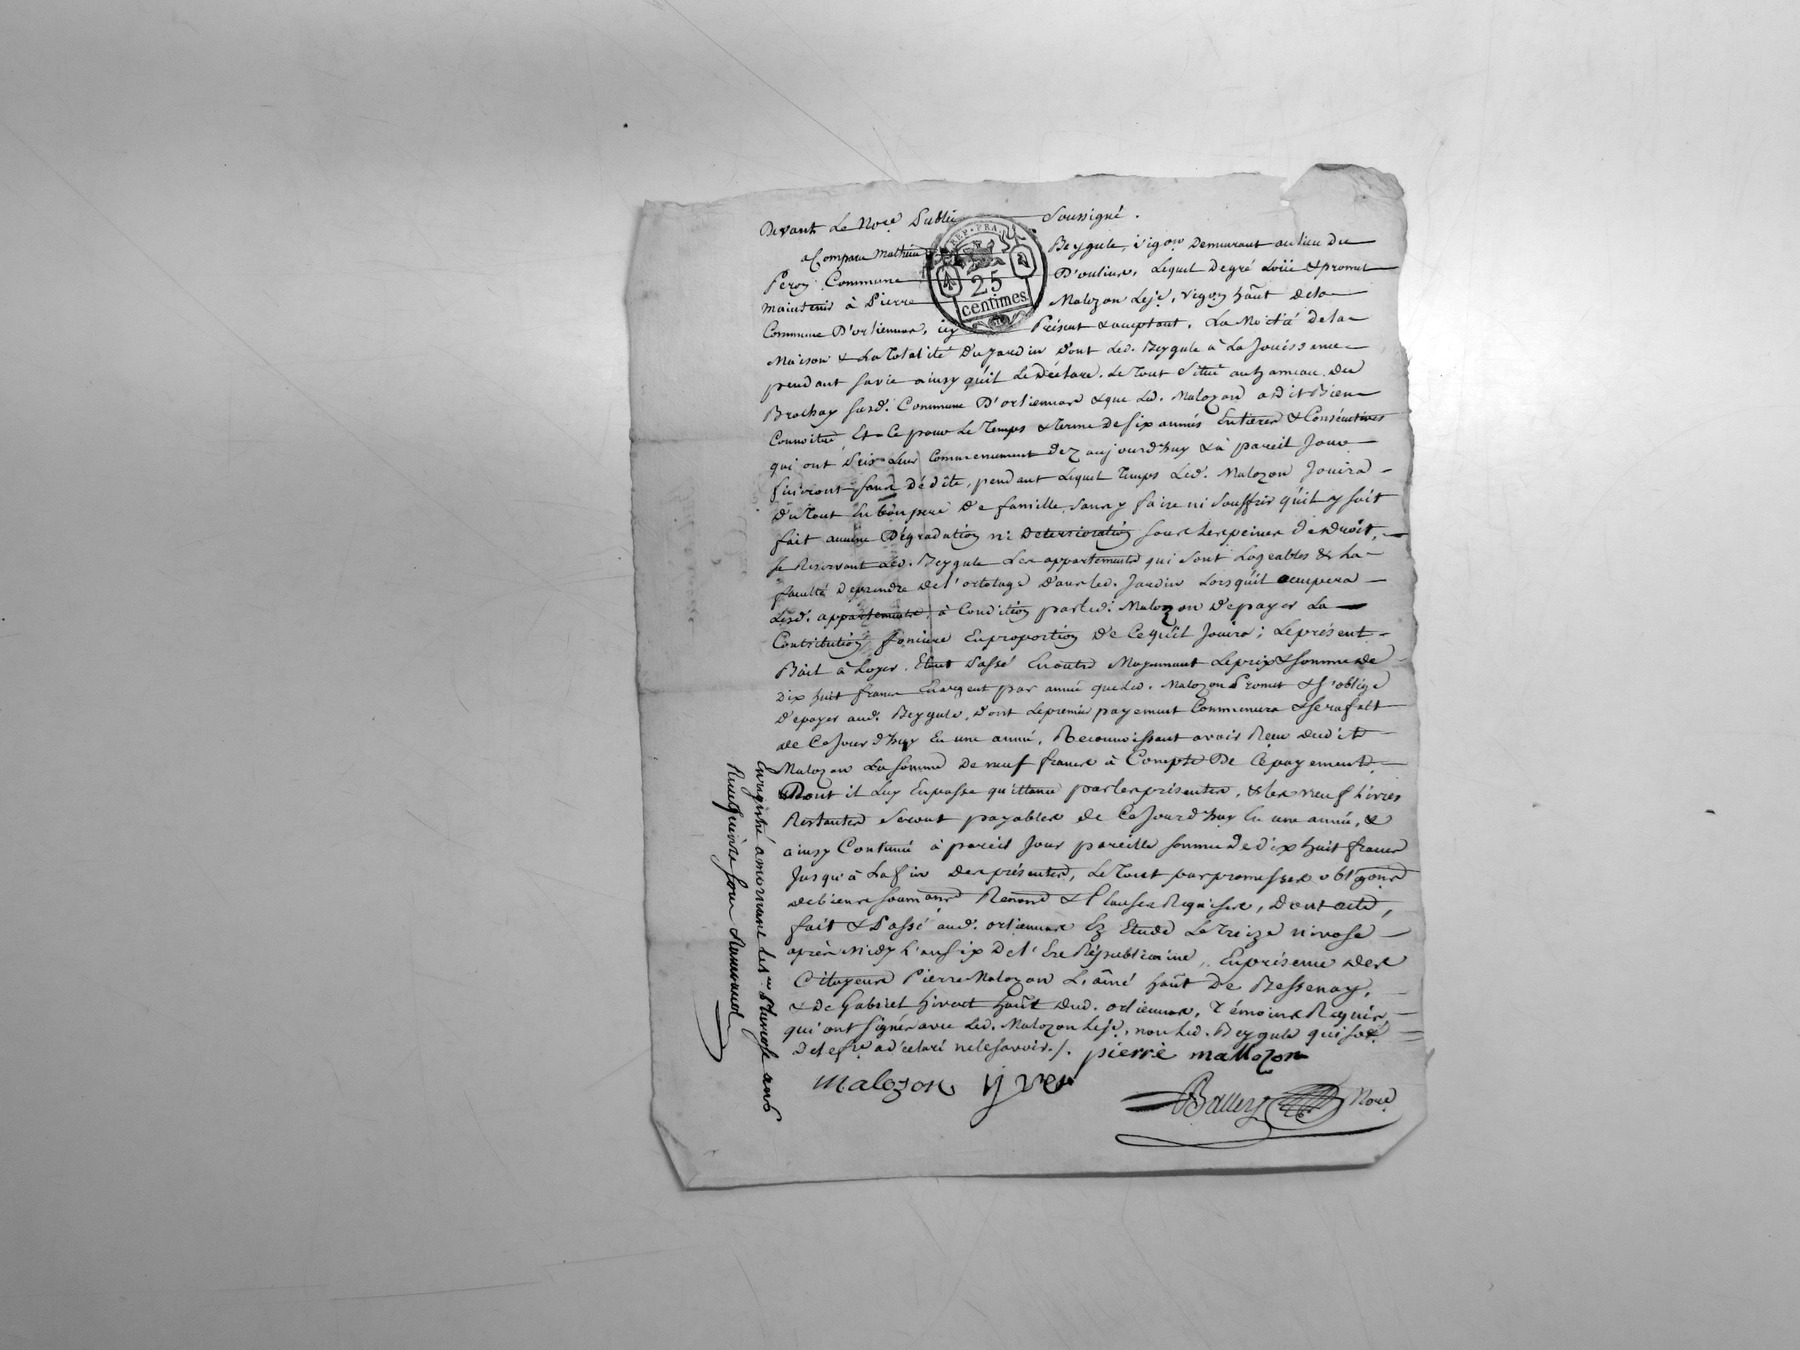 Devant Le Nore Public Soussigné.
a Comparu Mathieu Beygule, vigon Demeurant au lieu du
Peron Commune D'oulins, Lequel De gré Loüe & promet
maintenir à Pierre Malozon Le je, vigon hãnt dela
Commune D'orliennas, icy Présent & acceptant, La Moitié dela
Maison & La Totalité Du Jardin Dont Led. Beygule à La Jouissance
pendant sa vie ainsy qu'il Le Déclare. Le Tout Situé au hameau du
Brochay susd. Commune D'orliennas & que Led. Malozon a dit Bien
Connoître, Et Ce pour Le Temps & terme de six années Entieres & Consécutives
qui ont Pris Leur Commencement dez aujourd'huy & à pareil Jour
finiront sans Dédite, pendant Lequel Temps Led. Malozon Jouira
Du Tout En bon pere De famille sans y faire ni Souffrir qu'il y soit
fait aucune Dégradation ni Deterrioration sous Les peines De Droit,
se Réservant Led. Beygule Les appartements qui sont Logeables & La
faculté De prendre de L'ortolage Dans Led. Jardin Lorsqu'il ocupera
Lesd. appartements, à Condition par Led. Malozon De payer La
Contribution fonciere En proportion De Ce qu'il Jouira; Le présent
Bail à Loyer Etant Passé En outre Moyennant Le prix & somme de
Dix huit francs En argent par année que Led. Malozon Promet & s'oblige
De payer aud. Beygule, Dont Le premier payement Commencera & sera fait
de Ce Jourd'huy En une année, Reconnoissant avoir Reçu dudit
Malozon La somme De neuf francs à Compte De Ce payement
Dont il Luy En passe quittance par Les présentes, & Les neuf Livres
Restantes Seront payables de Ce Jourd'huy En une année, &
ainsy Continué à pareil Jour pareille somme De dix huit francs
Jusqu'à La fin Des présentes, Le Tout par promesses obligons
de biens soumons Renons & Clauses Requises, Dont acte,
fait & Passé aud. orliennas Ez Etude Le Treize nivose
après Midy L'an six De L'Ere Républicaine, En présence des
Citoyens Pierre Malozon L'aîné hãnt De Bessenay,
& De Gabriel hivert hãnt dud. orliennas, Témoins Requis
qui ont signés avec Led. Malozon Le je, non Led. Beygule qui
De Le fre a déclaré ne Le savoir./. pierre mallozon
malozon yver
Balley Nore
Enregistré a mornant le nivose
REP. FRA.
25
centimes